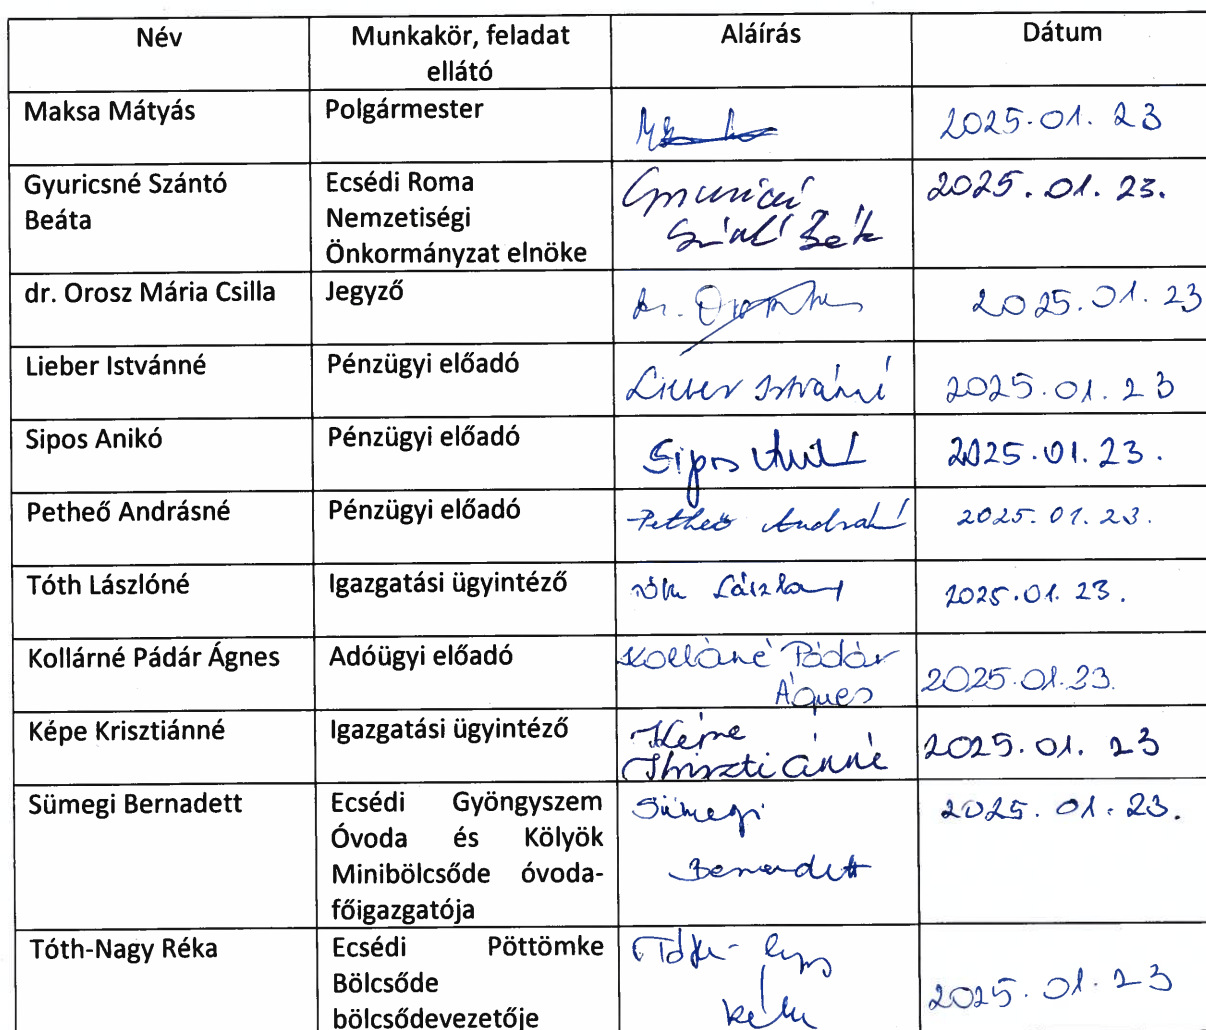 Név Munkakör, feladat ellátó Aláírás Dátum
Maksa Mátyás Polgármester 2025.01.23
Gyuricsné Szántó Beáta Ecsédi Roma Nemzetiségi Önkormányzat elnöke 2025.01.23.
dr. Orosz Mária Csilla Jegyző dr. Orosz 2025.01.23
Lieber Istvánné Pénzügyi előadó Lieber Istvánné 2025.01.23
Sipos Anikó Pénzügyi előadó Sipos Anikó 2025.01.23.
Petheő Andrásné Pénzügyi előadó Petheő Andrásné 2025.01.23.
Tóth Lászlóné Igazgatási ügyintéző Tóth Lászlóné 2025.01.23.
Kollárné Pádár Ágnes Adóügyi előadó Kollárné Pádár Ágnes 2025.01.23.
Képe Krisztiánné Igazgatási ügyintéző Képe Krisztiánné 2025.01.23
Sümegi Bernadett Ecsédi Gyöngyszem Óvoda és Kölyök Minibölcsőde óvoda-főigazgatója Sümegi Bernadett 2025.01.23.
Tóth-Nagy Réka Ecsédi Pöttömke Bölcsőde bölcsődevezetője Tóth-Nagy Réka 2025.01.23